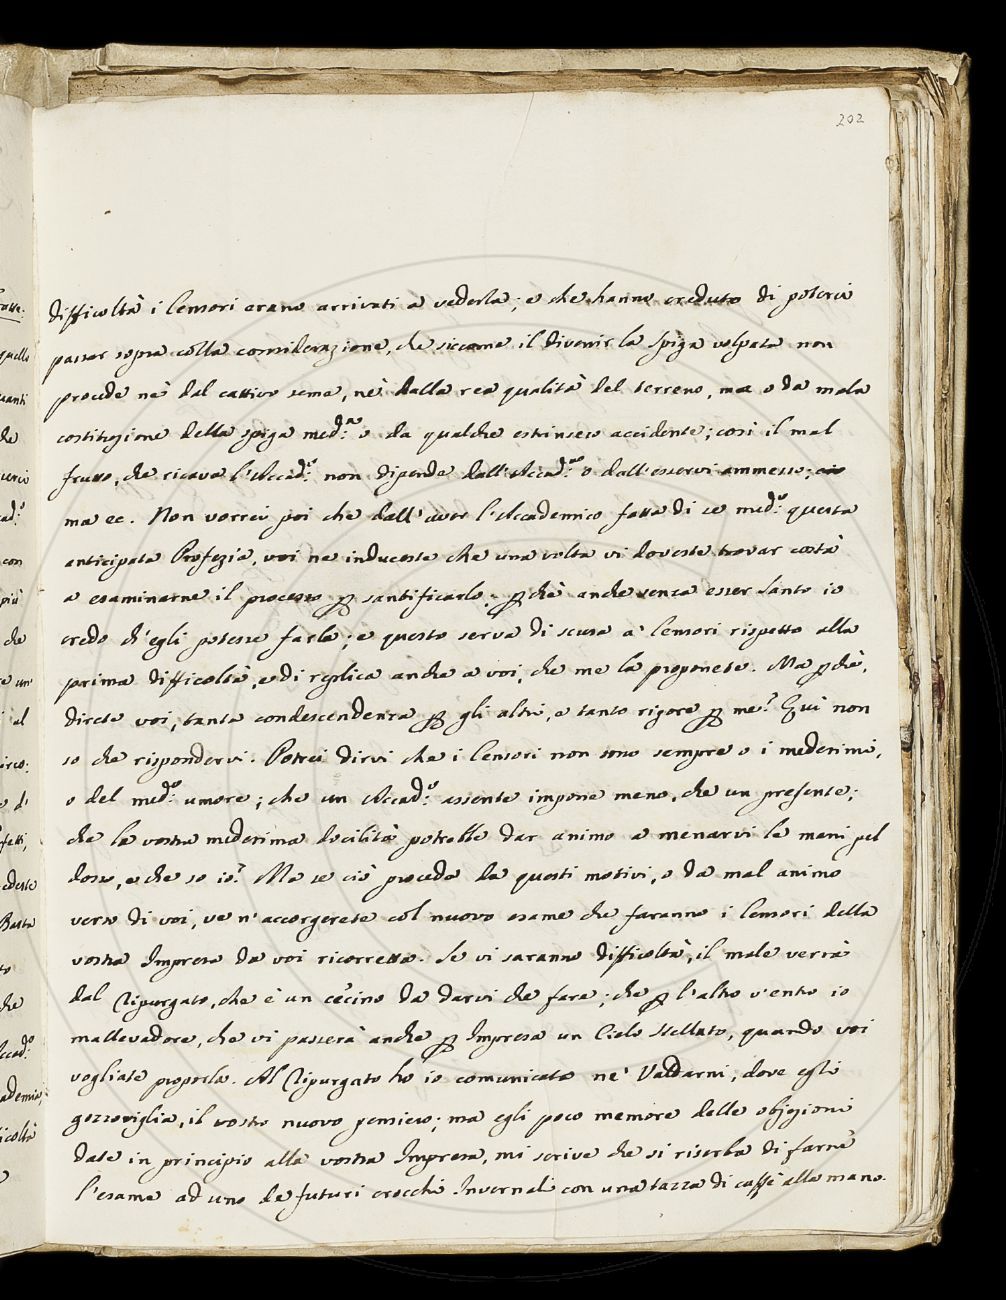 202
difficoltà i Censori erano arrivati a vederla; e che hanno creduto di potervi
passar sopra colla considerazione, che siccome il divenir la spiga volpata non
procede nè dal cattivo seme, nè dalla rea qualità del terreno, ma o da mala
costituzione della spiga med:ma o da qualche estrinseco accidente; così il mal
frutto, che ricava l'Accad:co non dipende dall'Accad:a o dall'esservi ammesso;
ma ec. Non vorrei poi che dall'aver l'Accademico fatta di se med:o questa
anticipata Profezia, voi ne induceste che una volta vi doveste trovar costà
a esaminarne il processo p santificarlo; pchè anche senza esser Santo io
credo ch'egli potesse farla; e questo serva di scusa a' Censori rispetto alla
prima difficoltà, e di replica anche a voi, che me la proponete. Ma pchè,
direte voi, tanta condescendenza p gli altri, e tanto rigore p me? Quì non
so che rispondervi. Potrei dirvi che i Censori non sono sempre o i medesimi,
o del med:o umore; che un Accad:o assente impone meno, che un presente;
che la vostra medesima docilità potrebbe dar animo a menarvi le mani pel
dosso, e che so io? Ma se ciò procede da questi motivi, o da mal animo
verso di voi, ve n'accorgerete col nuovo esame che faranno i Censori della
vostra Impresa da voi ricorretta. Se vi saranno difficoltà, il male verrà
dal Ripurgato, che è un cécino da darvi che fare; che p l'altro v'entro io
mallevadore, che vi passerà anche p Impresa un Cielo stellato, quando voi
vogliate proporlo. Al Ripurgato ho io comunicato ne' Valdarni, dove egli
gozzoviglia, il vostro nuovo pensiero; ma egli poco memore delle objezioni
date in principio alla vostra Impresa, mi scrive che si riserba di farne
l'esame ad uno de futuri crocchi Invernali con una tazza di caffè alla mano.